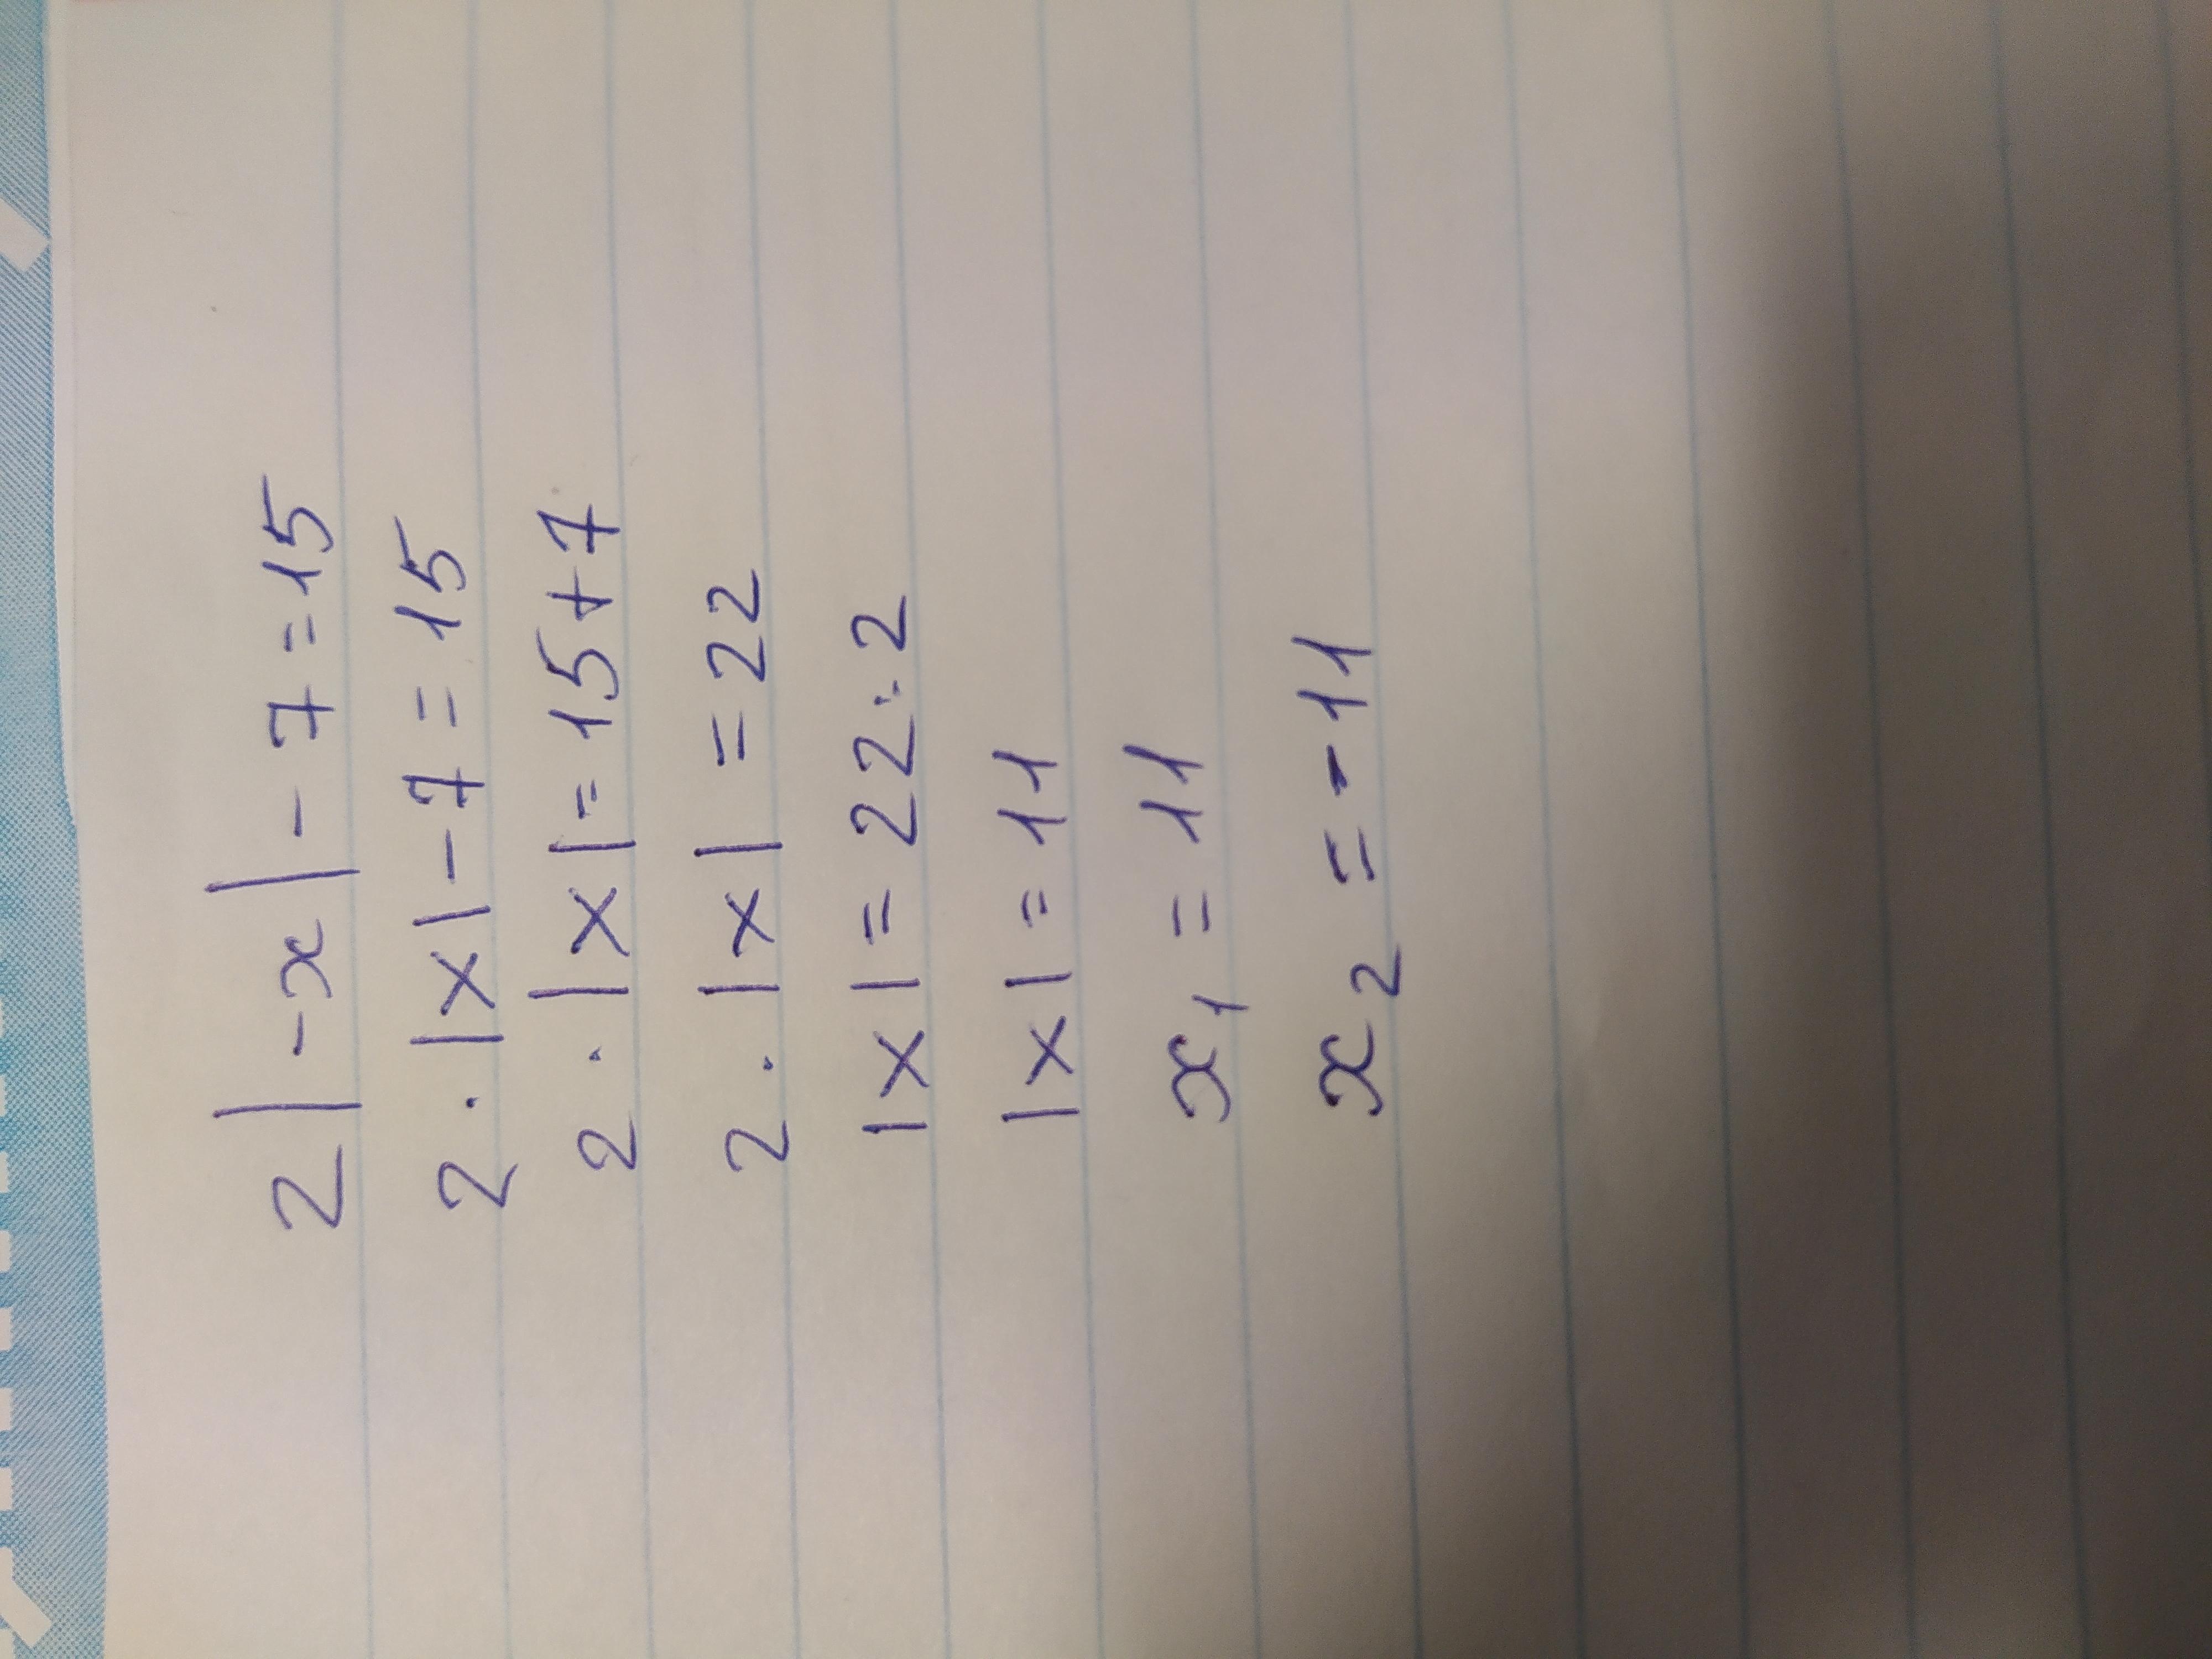 2|-x|-7=15
2·|x|-7=15
2·|x|=15+7
2·|x|=22
|x|=22:2
|x|=11
x₁=11
x₂=-11